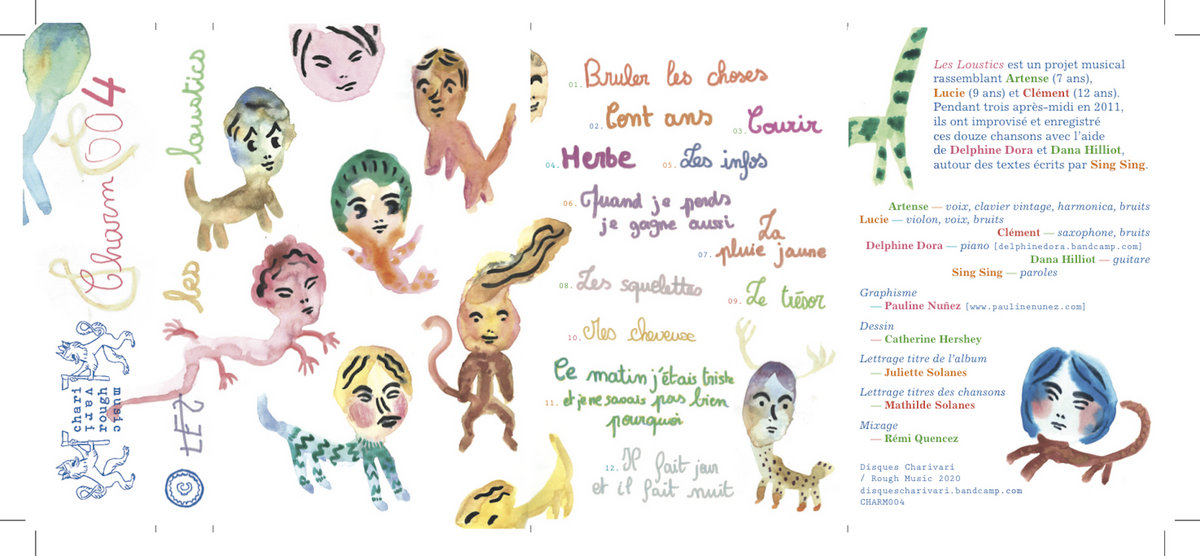 Charm 004
les loustics
chari
vari
rough
music
©
Bruler les choses
01.
Cent ans
02.
03. Courir
04. Herbe
05. Les infos
06. Quand je perds
je gagne aussi
La
07. pluie jaune
08. Les squelettes
09. Le trésor
10. Mes cheveux
Ce matin j'étais triste
11. et je ne savais pas bien
pourquoi
12. Il fait jour
et il fait nuit
Les Loustics est un projet musical
rassemblant Artense (7 ans),
Lucie (9 ans) et Clément (12 ans).
Pendant trois après-midi en 2011,
ils ont improvisé et enregistré
ces douze chansons avec l'aide
de Delphine Dora et Dana Hilliot,
autour des textes écrits par Sing Sing.
Artense — voix, clavier vintage, harmonica, bruits
Lucie — violon, voix, bruits
Clément — saxophone, bruits
Delphine Dora — piano [delphinedora.bandcamp.com]
Dana Hilliot — guitare
Sing Sing — paroles
Graphisme
— Pauline Nuñez [www.paulinenunez.com]
Dessin
— Catherine Hershey
Lettrage titre de l'album
— Juliette Solanes
Lettrage titres des chansons
— Mathilde Solanes
Mixage
— Rémi Quencez
Disques Charivari
/ Rough Music 2020
disquescharivari.bandcamp.com
CHARM004